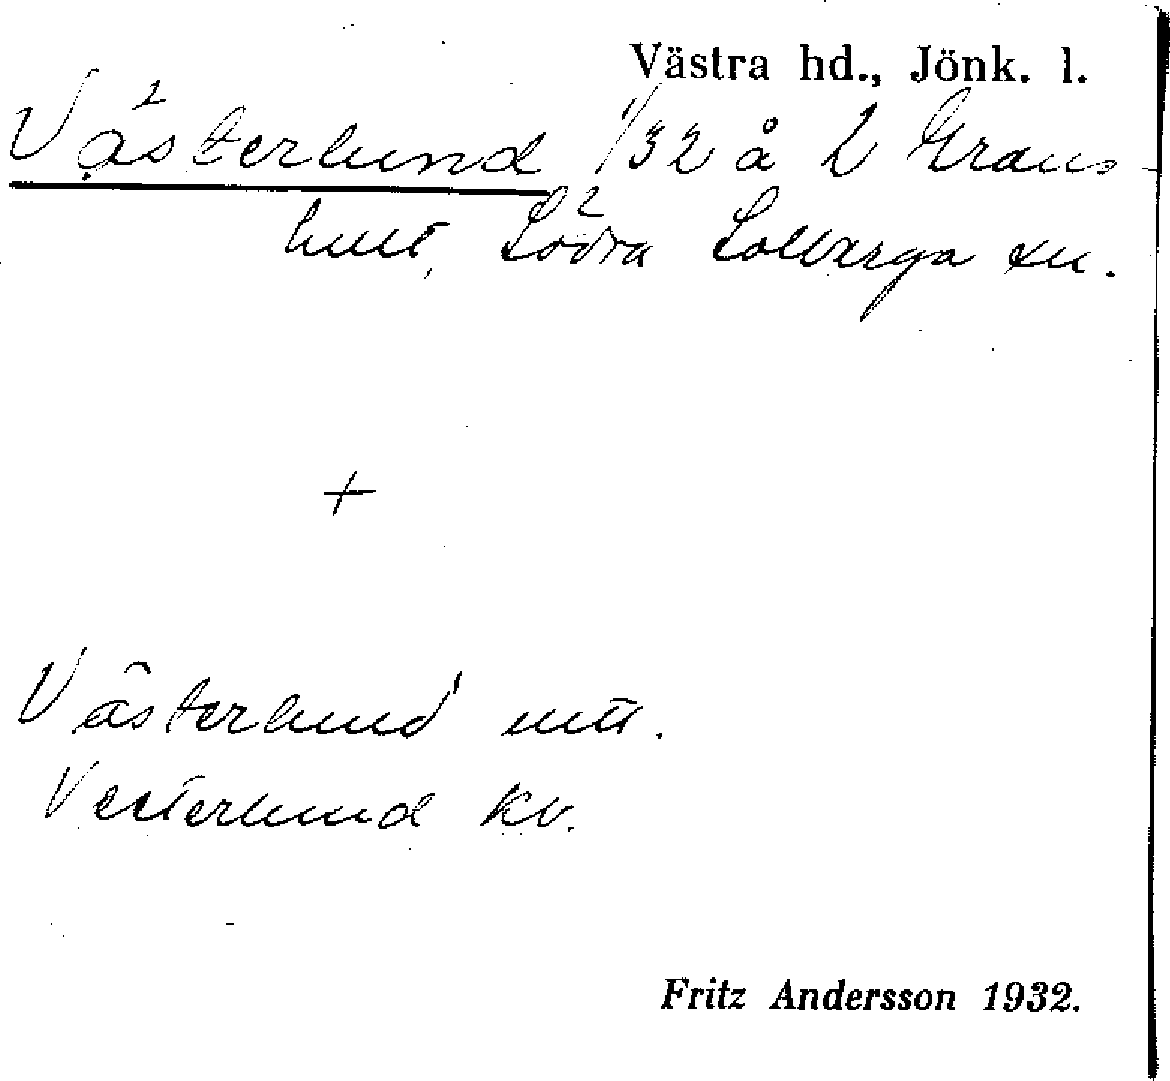 Västra hd., Jönk. l.
Västerlund 1/32 å 2 Grans-
hult, Södra Solberga sn.
+
Västerlund mtl.
Vesterlund kv.
Fritz Andersson 1932.